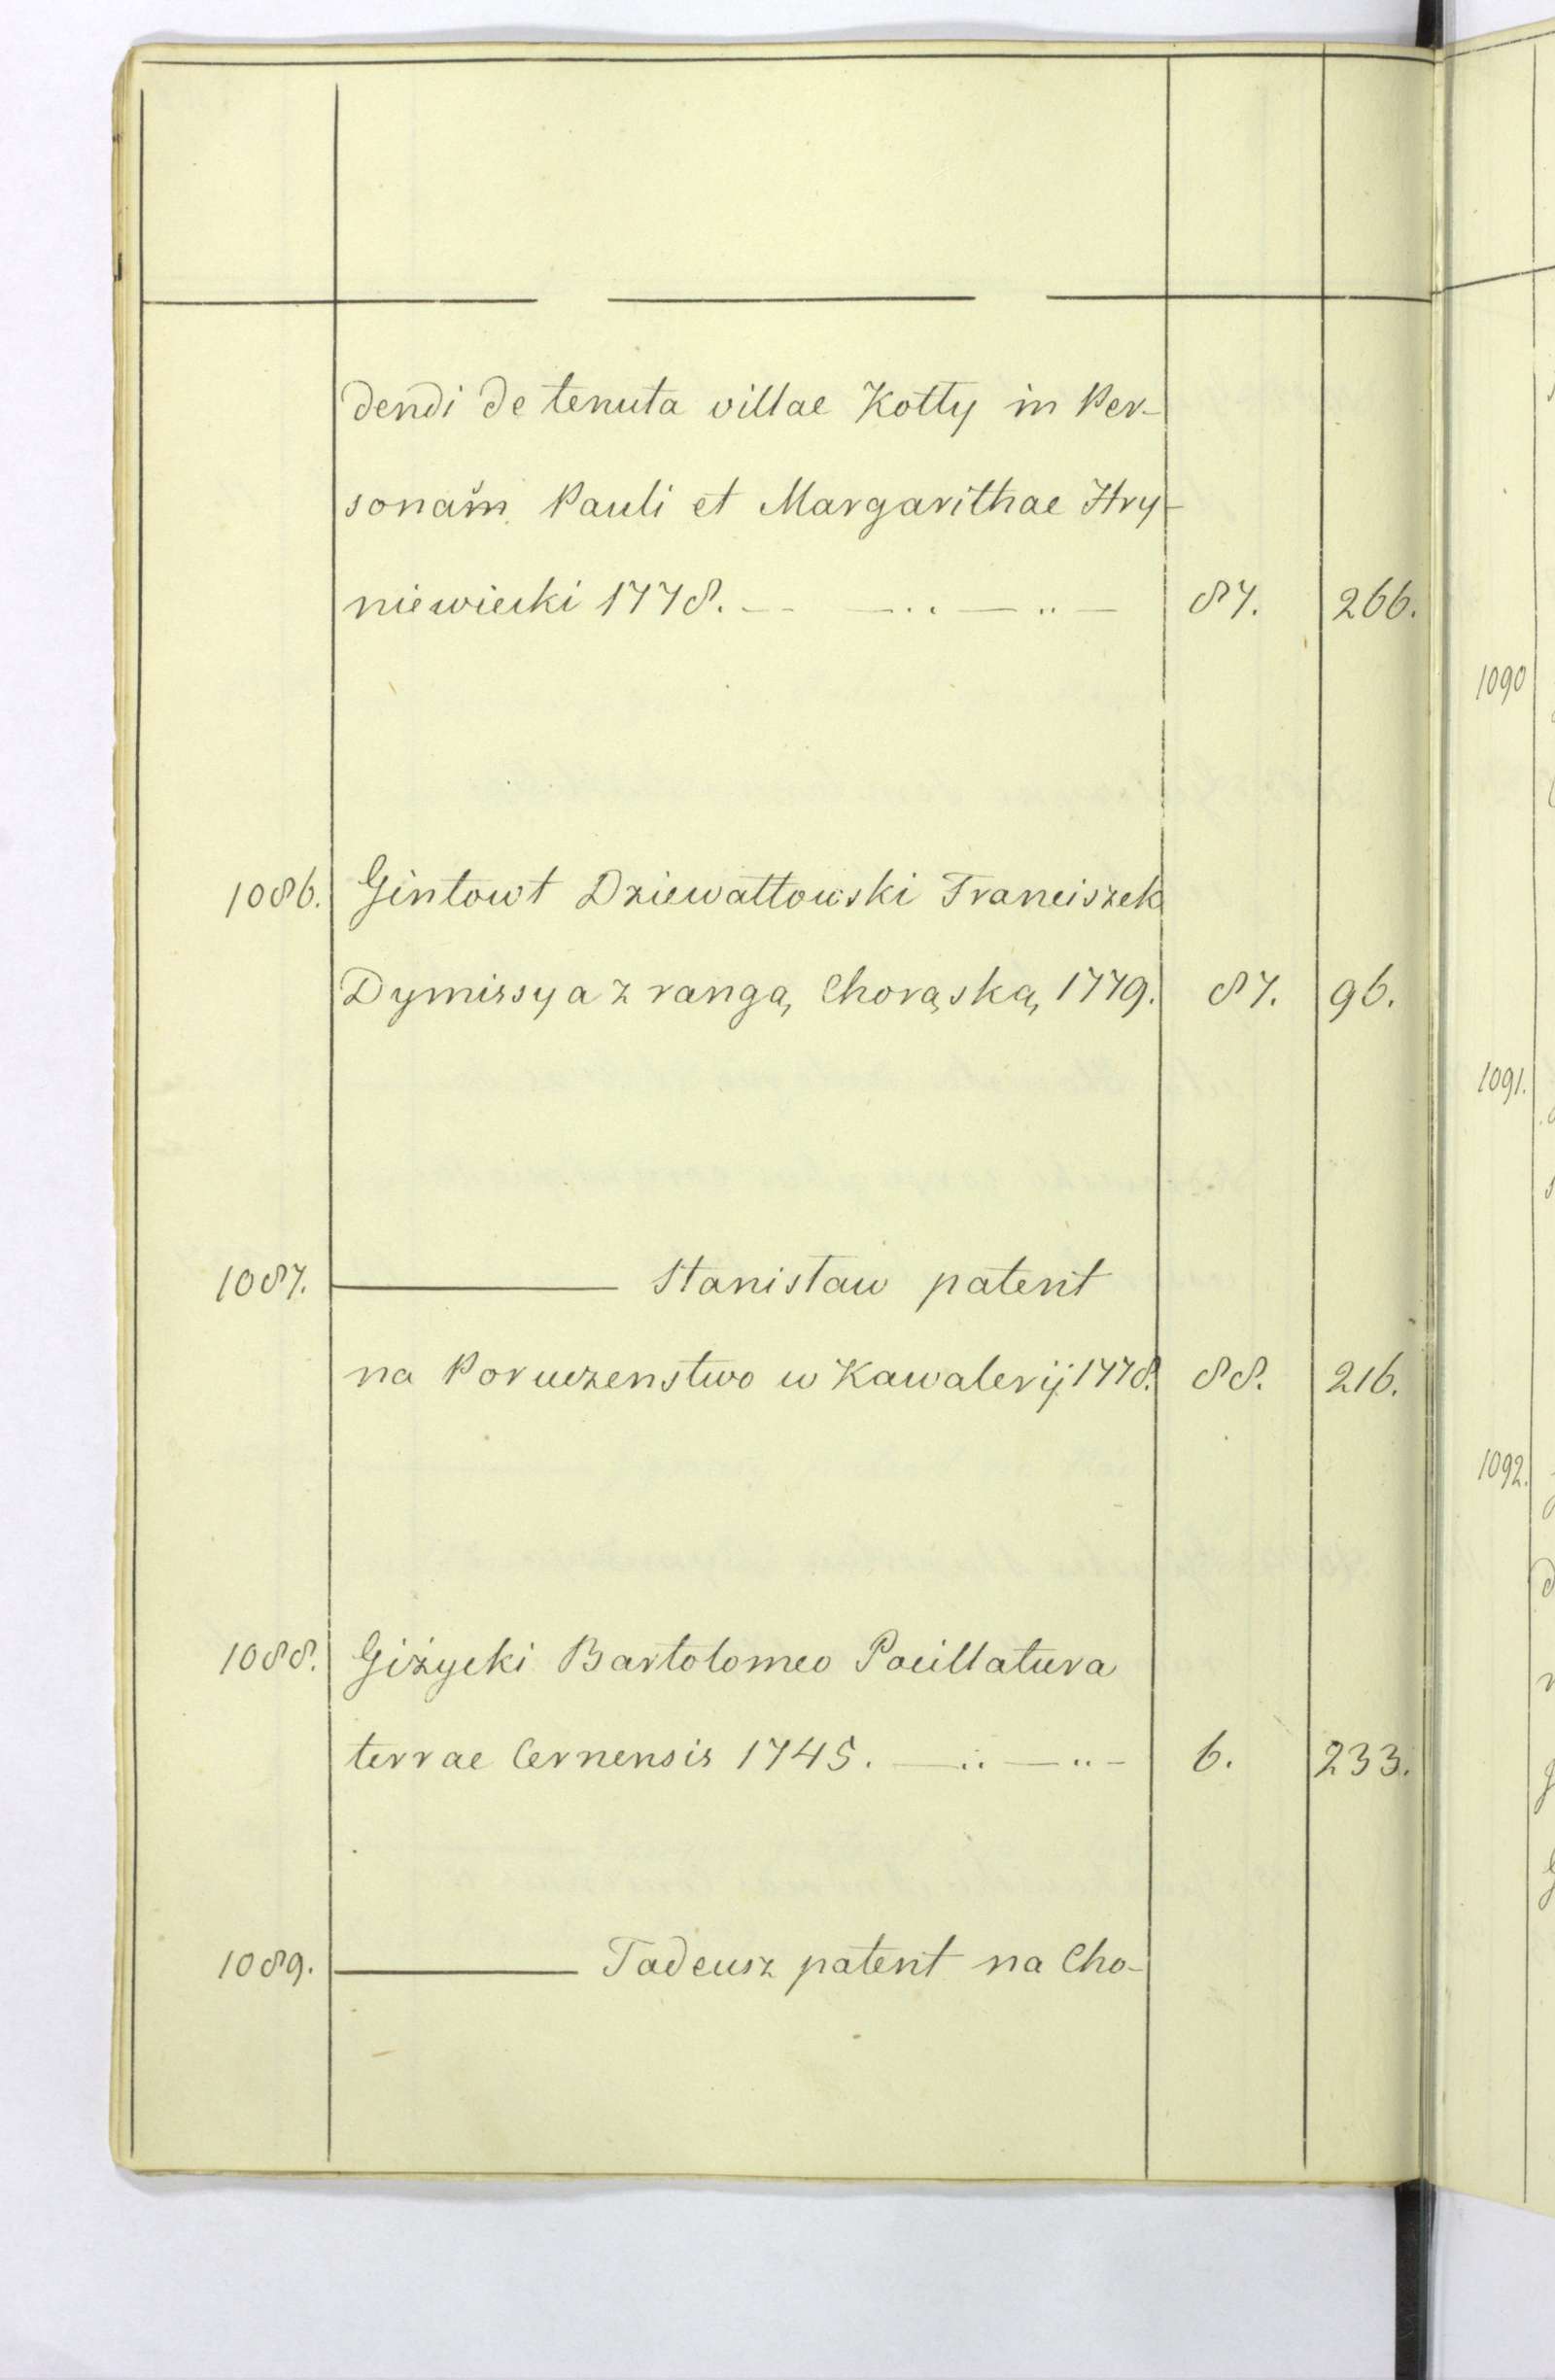 dendi de tenuta villae Kotty in Per-
sonam Pauli et Margarithae Hry-
niewiecki 1778. 87. 266.
1086. Gintowt Dziewałtowski Franciszek
Dymissya z rangą Chorąską 1779. 87. 96.
1087. ——— Stanisław patent
na Poruczenstwo w Kawaleryi 1778. 88. 216.
1088. Giżycki Bartolomeo Pocillatura
terrae Cernensis 1745. 6. 233.
1089. ——— Tadeusz patent na Cho-
1090
1091.
1092.